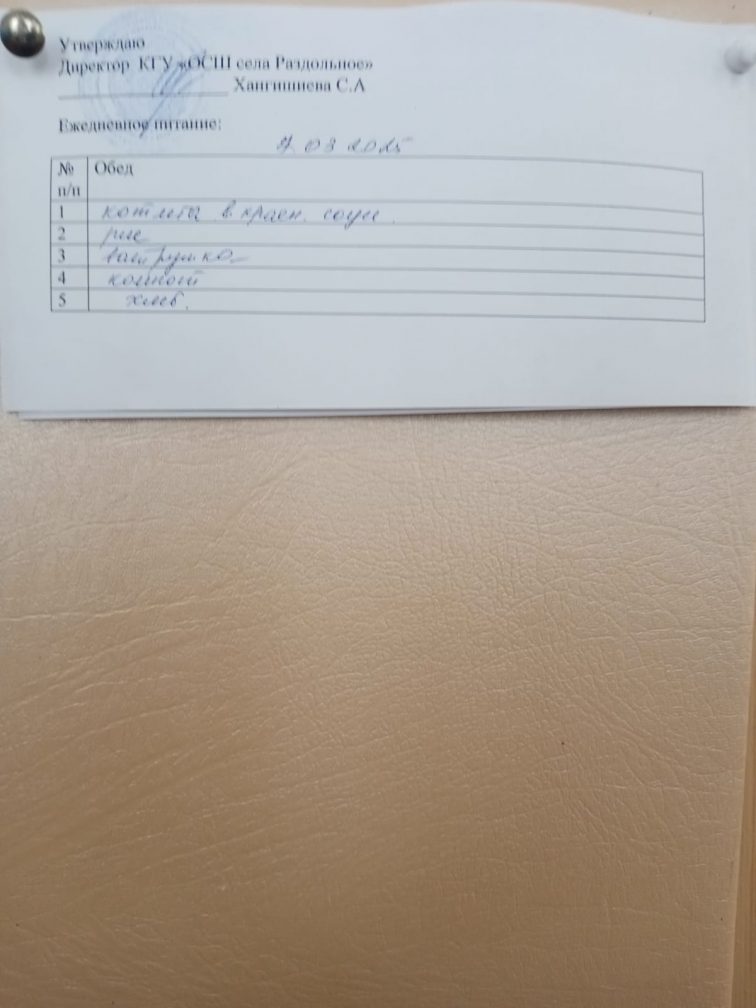 Утверждаю
Директор КГУ «ОСШ села Раздольное»
Хангишиева С.А
Ежедневное питание:
7 03 2025
№ п/п Обед
1 котлета в красн. соусе.
2 рис
3 ватрушка
4 компот
5 хлеб.